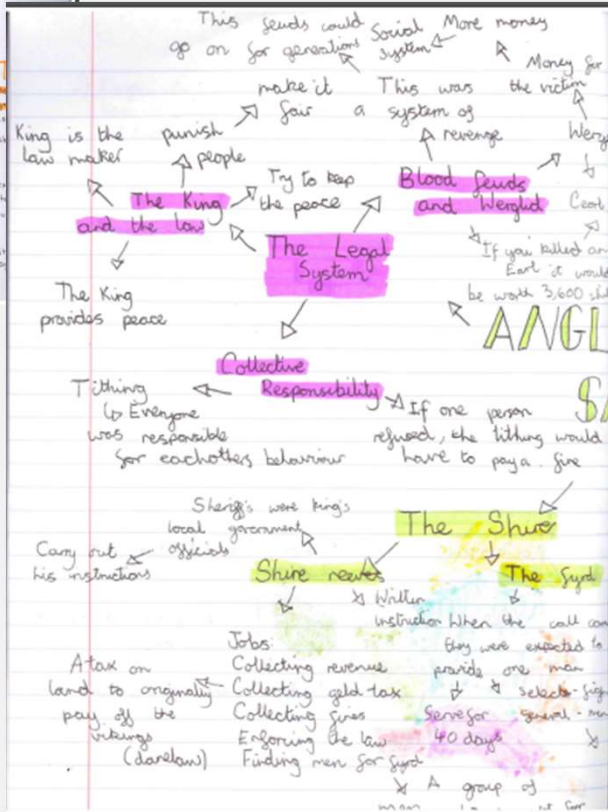 This feuds could
go on for generations
Social
system
More money
Money for
the victim
make it
fair
This was
a system of
revenge
King is the
law maker
punish
people
Werg
Try to keep
the peace
Blood feuds
and Werglid
The King
and the law
Ceorl
The Legal
System
If you killed an
Earl it would
be worth 3,600 shil
The King
provides peace
ANGL
SA
Collective
Responsibility
Tithing
↳ Everyone
was responsible
for eachothers behaviour
If one person
refused, the tithing would
have to pay a fine
Sheriffs were king's
local government
officials
The Shire
Carry out
his instructions
Shire reeves
The Fyrd
Written
instruction
When the call cam
they were expected to
provide one man
Jobs:
Collecting revenue
Collecting geld-tax
Collecting fines
Enforcing the law
Finding men for fyrd
A tax on
land to originally
pay off the
vikings
(danelaw)
selects - figh
general - men
Serve for
40 days
A group of